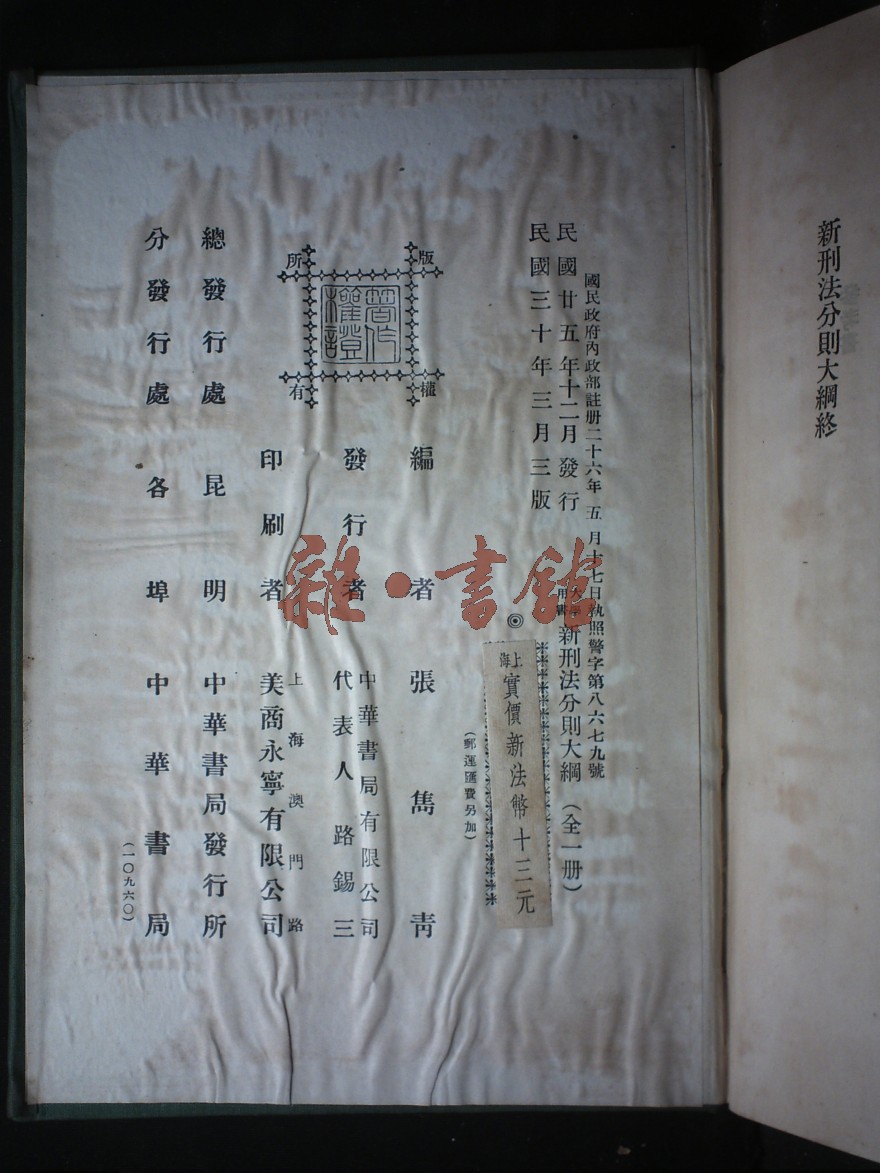 新刑法分則大綱終
國民政府內政部註册二十六年五月十七日執照警字第八六七九號
民國廿五年十二月發行
民國三十年三月三版
大學用書
新刑法分則大綱(全一册)
◎
上海
實價新法幣十三元
(郵運匯費另加)
版權所有
著作權證
編者張雋青
發行者
中華書局有限公司
代表人路錫三
印刷者
上海澳門路
美商永寧有限公司
總發行處昆明中華書局發行所
分發行處各埠中華書局
(一〇九六〇)
雜·書館